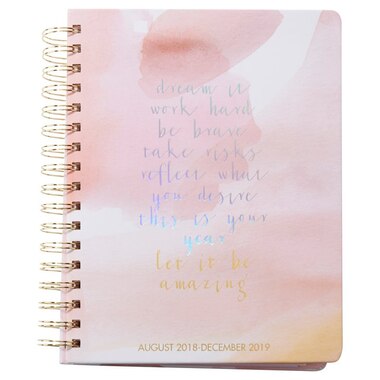 dream it
work hard
be brave
take risks
reflect what
you desire
this is your
year
let it be
amazing
AUGUST 2018-DECEMBER 2019